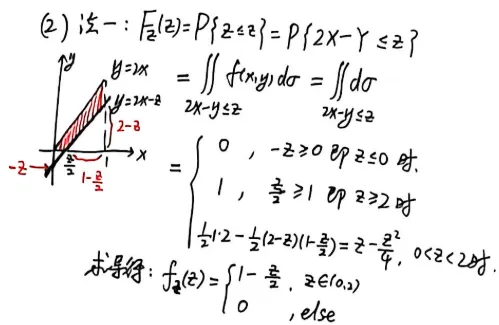 (2) 法一：F_Z(z)=P{Z≤z}=P{2X-Y≤z}
y
y=2x
y=2x-z
2-z
-z
z/2
1-z/2
1
x
=∬_{2x-y≤z} f(x,y)dσ=∬_{2x-y≤z} dσ
={ 0 , -z≥0 即 z≤0 时.
1 , z/2≥1 即 z≥2 时
1/2·1·2-1/2(2-z)(1-z/2)=z-z²/4, 0<z<2时.
求导得：f_Z(z)={ 1-z/2 , z∈(0,2)
0 , else